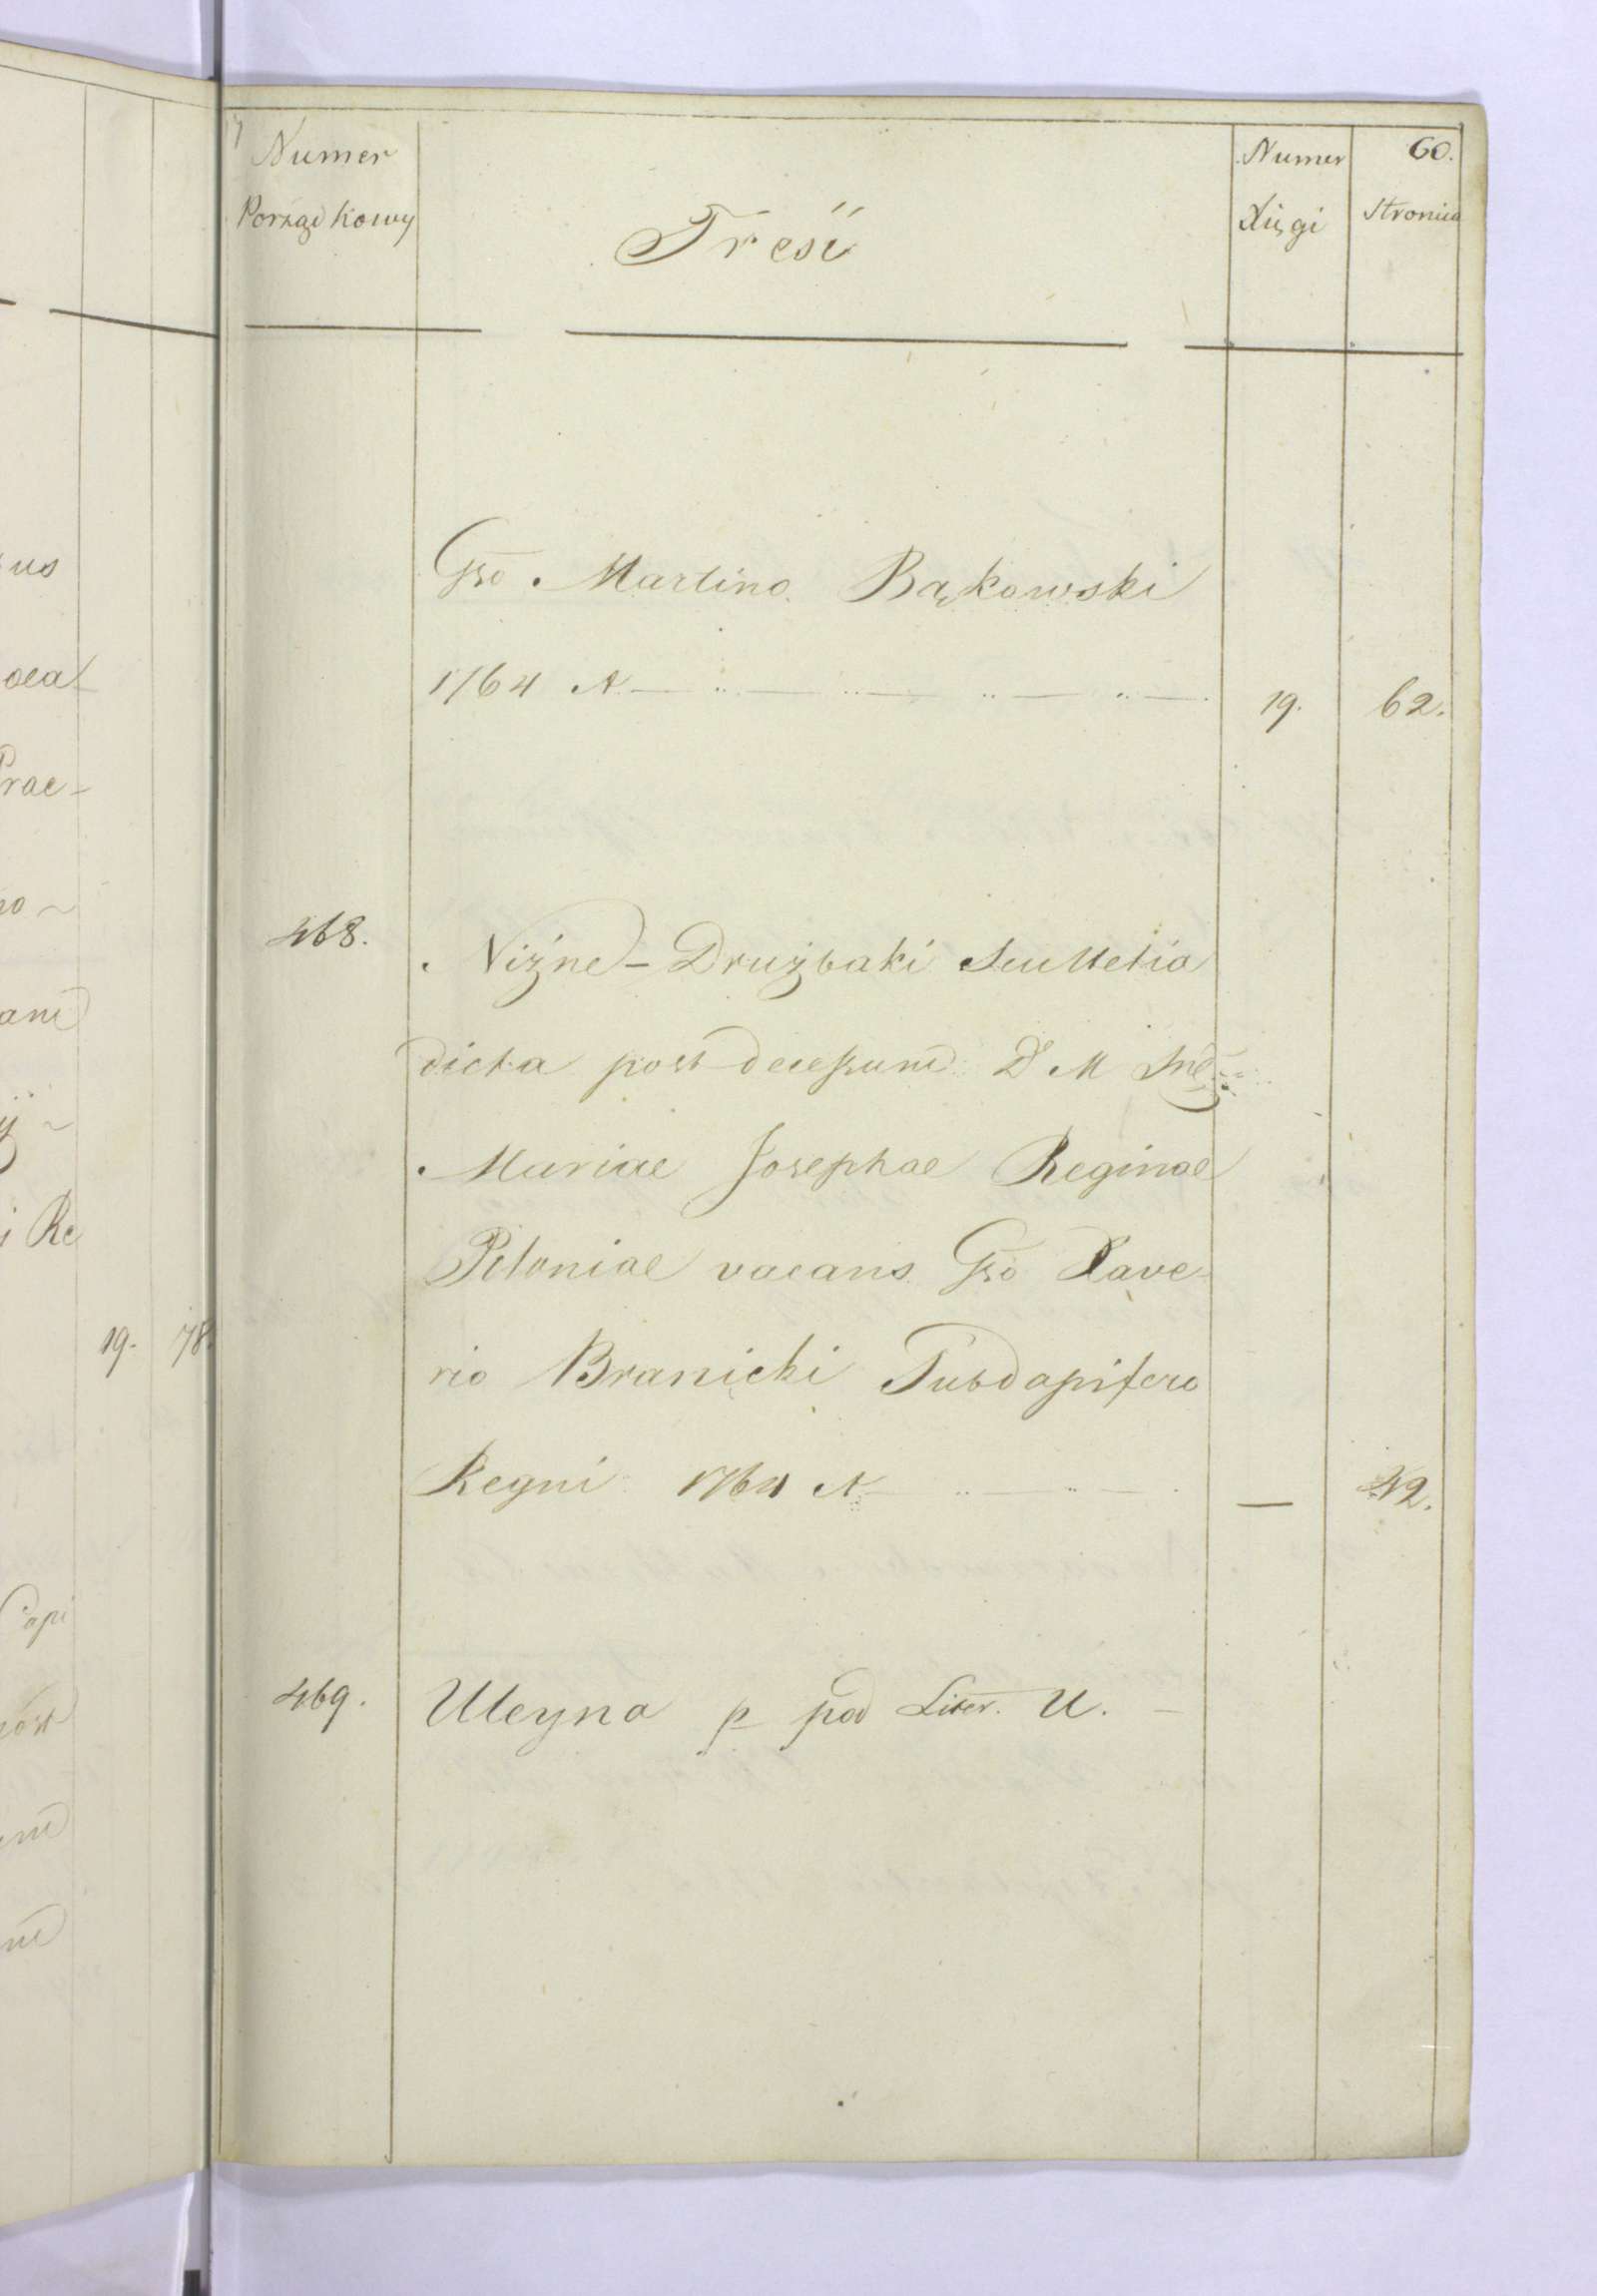 Numer Porządkowy
Treść
Numer Xięgi
60.
Stronica
Gso Martino Bąkowski
1764 A 19. 62.
468. Niżne-Drużbaki Scultetia
dicta post decessum D M
Mariae Josephae Reginae
Poloniae vacans Gso Xave-
rio Branicki Subdapifero
Regni 1764 A — 42.
469. Uleyna p pod Liter. U.
us
Prae-
i Re
19. 78.
Capi